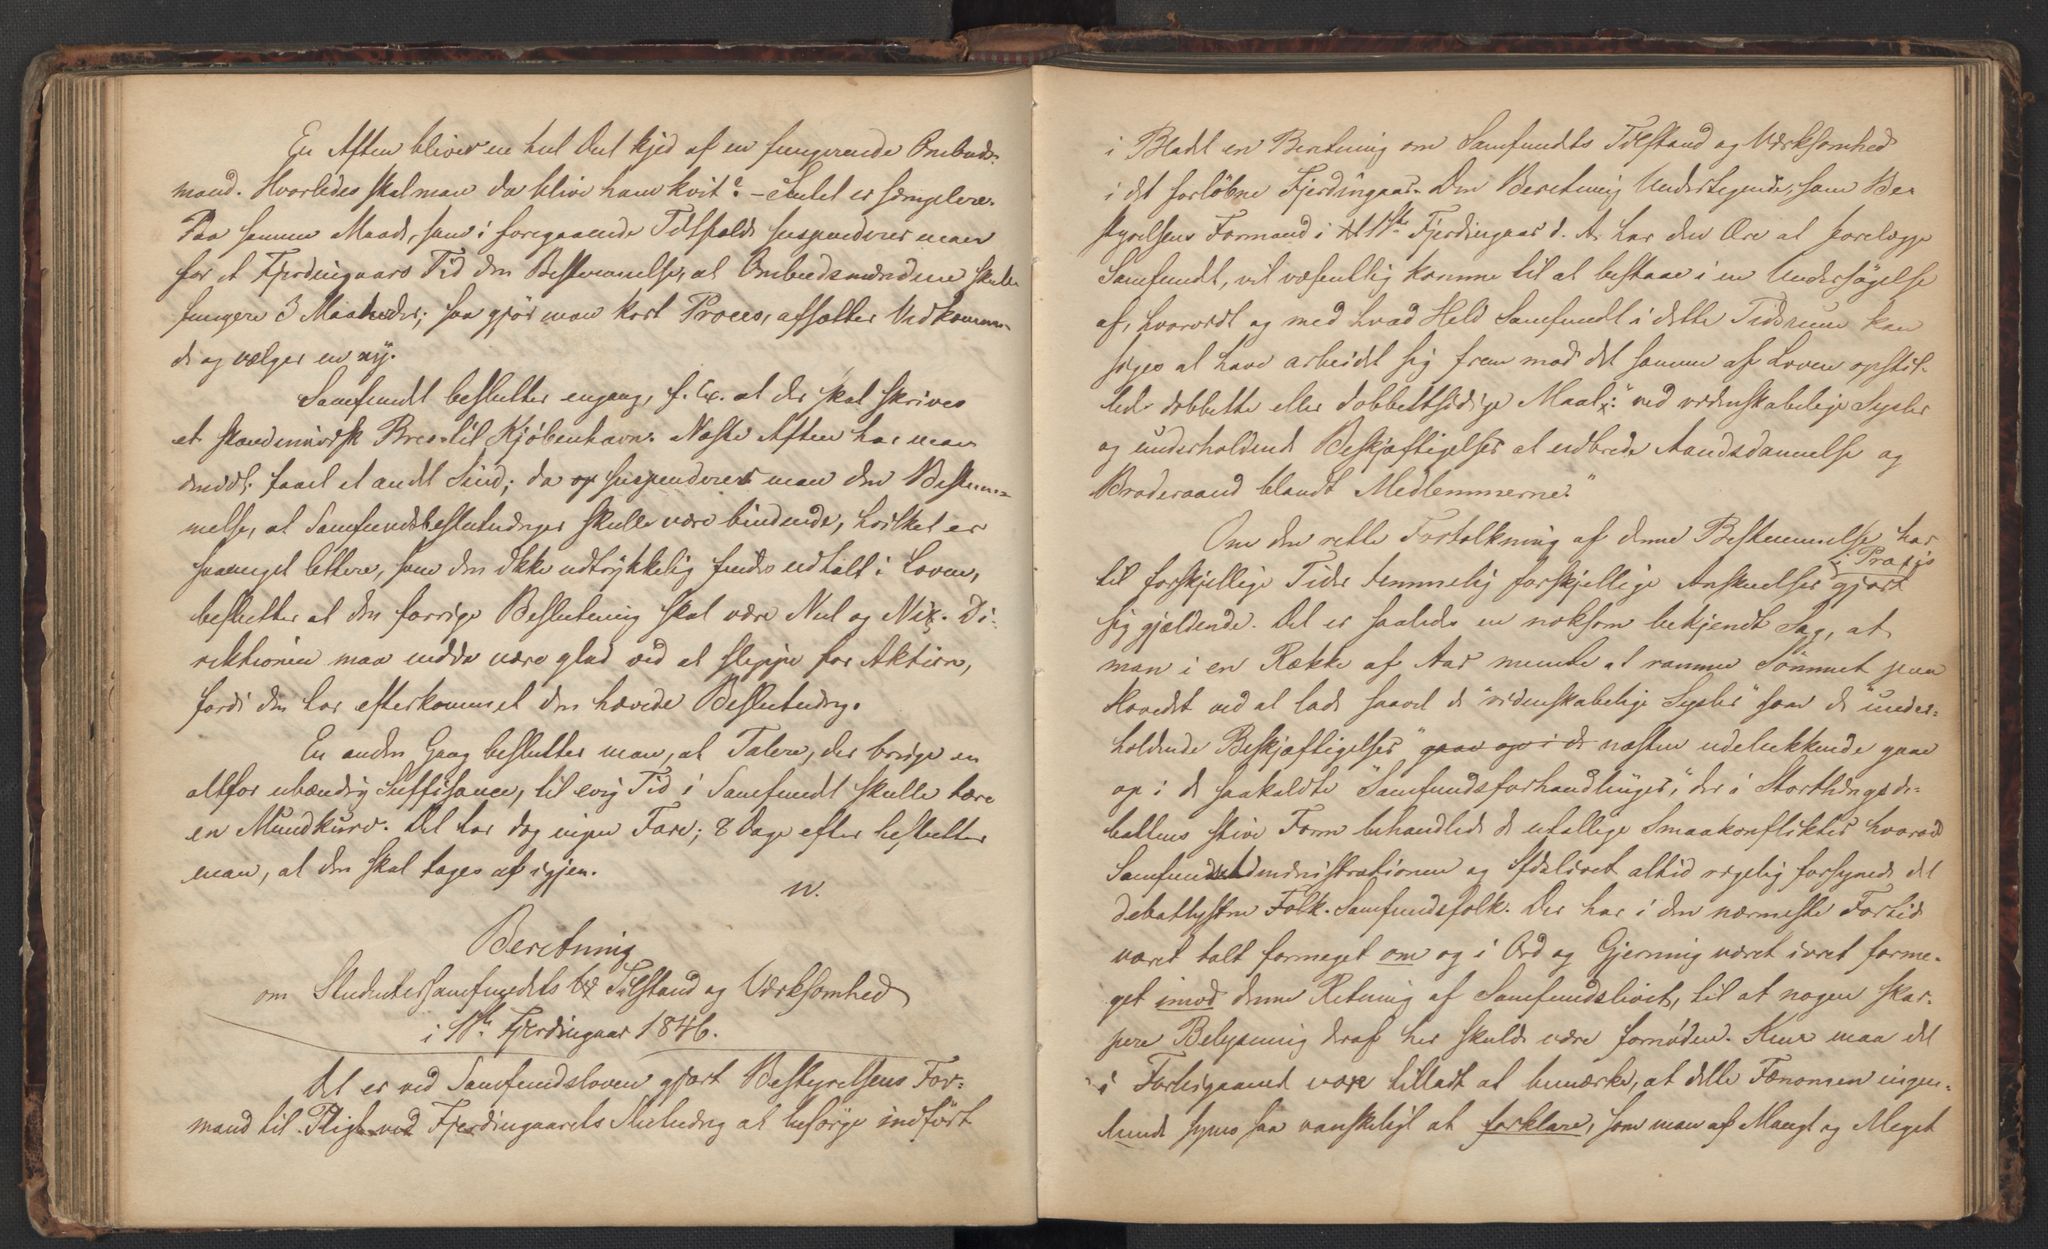 En Aften bliver en hel Del kjed af en fungerende Ombuds-
mand. Hvorledes skal man da blive ham kvit? – Intet er simplere.
Paa samme Maade, som i foregaaende Tilfælde suspenderer man
for et Fjerdingaars Tid den Bestemmelse, at Ombudsmændene skulle
fungere 3 Maaneder; saa gjør man kort Proces, afsætter Vedkommen-
de og vælger en ny.
Samfundet beslutter engang, f. Ex. at der skal skrives
et skandinavisk Brev til Kjøbenhavn. Næste Aften har man
faaet et andet Sind; da suspenderer man den Bestem-
melse, at Samfundsbeslutninger skulle være bindende, hvilket er
saameget lettere, som den ikke udtrykkelig findes udtalt i Loven,
beslutter at den forrige Beslutning skal være Nul og Nix. Di-
rektionen maa endda være glad ved at slippe for Aktion,
fordi den har efterkommet den hævede Beslutning.
En anden Gang beslutter man, at Talere, der bruge en
altfor ubændig Suffisance, til evig Tid i Samfundet skulle bære
en Mundkurv. Det har dog ingen Fare; 8 Dage efter beslutter
man, at den skal tages af igjen.
n.
Beretning
om Studentersamfundets Tilstand og Værksomhed
i 1ste Fjerdingaar 1846.
Det er ved Samfundsloven gjort Bestyrelsens For-
mand til Pligt ved Fjerdingaarets Slutning at besørge indført
i Bladet en Beretning om Samfundets Tilstand og Værksomhed
i det forløbne Fjerdingaar. Den Beretning Undertegnede, som Be-
styrelsens Formand i 1ste Fjerdingaar d. A. har den Ære at forelægge
Samfundet, vil væsentlig komme til at bestaae i en Undersøgelse
af, hvorvidt og med hvad Held Samfundet i dette Tidsrum kan
siges at have arbeidet sig frem mod det samme af Loven opstil-
lede dobbelte eller dobbeltsidige Maal: "ved videnskabelige Sysler
og underholdende Beskjæftigelser at udbrede Aandsdannelse og
Broderaand blandt Medlemmerne."
Om den rette Fortolkning af denne Bestemmelse har
til forskjellige Tider temmelig forskjellige Anskuelser i Praxis gjort
sig gjældende. Det er saaledes en noksom bekjendt Sag, at
man i en Række af Aar meente at ramme Sømmet paa
Hovedet ved at lade saavel de "videnskabelige Sysler" som de "under-
holdende Beskjæftigelser" gaae op i de næsten udelukkende gaae
op i de saakaldte "Samfundsforhandlinger", der i Storthingsde-
battens stive Form behandlede de utallige Smaakonflikter hvorved
Samfundsadministrationen og Ifdelivet altid rigelig forsynede det
debatlystne Folk. Samfundsfolk. Der har i den nærmeste Fortid
været talt formeget om og i Ord og Gjerning været ivret forme-
get imod denne Retning af Samfundslivet, til at nogen skar-
pere Belysning deraf her skulde være fornøden. Kun maa det
i Forbigaaende være tilladt at bemærke, at dette Fænomen ingen-
lunde synes saa vanskeligt at forklare, som man af Mangt og Meget